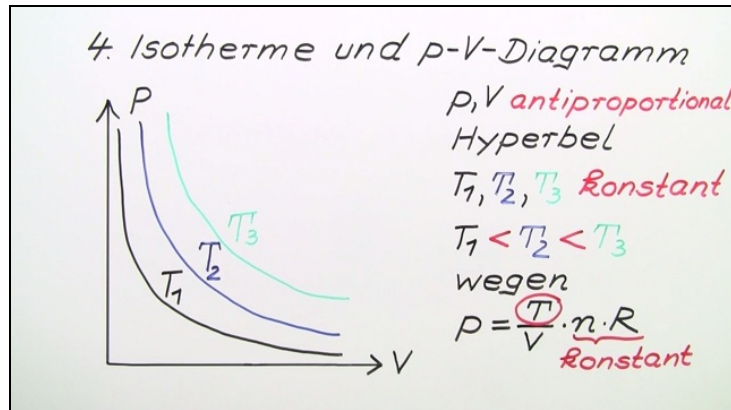 4. Isotherme und p-V-Diagramm
P
T₃
T₂
T₁
V
p, V antiproportional
Hyperbel
T₁, T₂, T₃ konstant
T₁ < T₂ < T₃
wegen
p = T/V · n · R
konstant